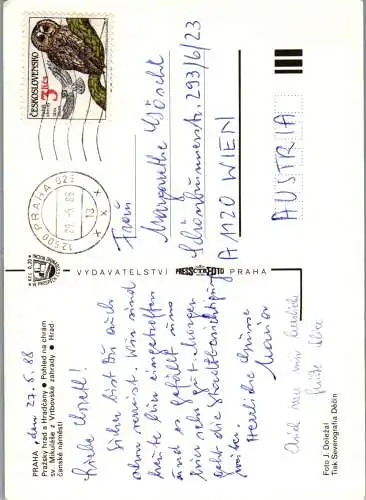 PRAHA, den 27.5.88
Pražský hrad a Hradčany ● Pohled na chrám
sv. Mikuláše z Vrtbovské zahrady ● Hrad-
čanské náměstí
Liebe
Sicher bist Du auch
schon verreist. Wir sind
heute hier eingetroffen
und es gefällt uns
hier sehr gut. Morgen
geht die Stadtbesichtigung
weiter.
Herzliche Grüße
Maria
Auch von mir herzliche
Grüße
Foto J. Doležal
Tisk Severografia Děčín
VYDAVATELSTVÍ PRESSFOTO PRAHA
ČESKOSLOVENSKO
3 Kčs
12500 PRAHA 025
28.-5.88
13
Frau
Margarethe
Schönbrunnerstr. 293/6/23
A 1120 WIEN
AUSTRIA